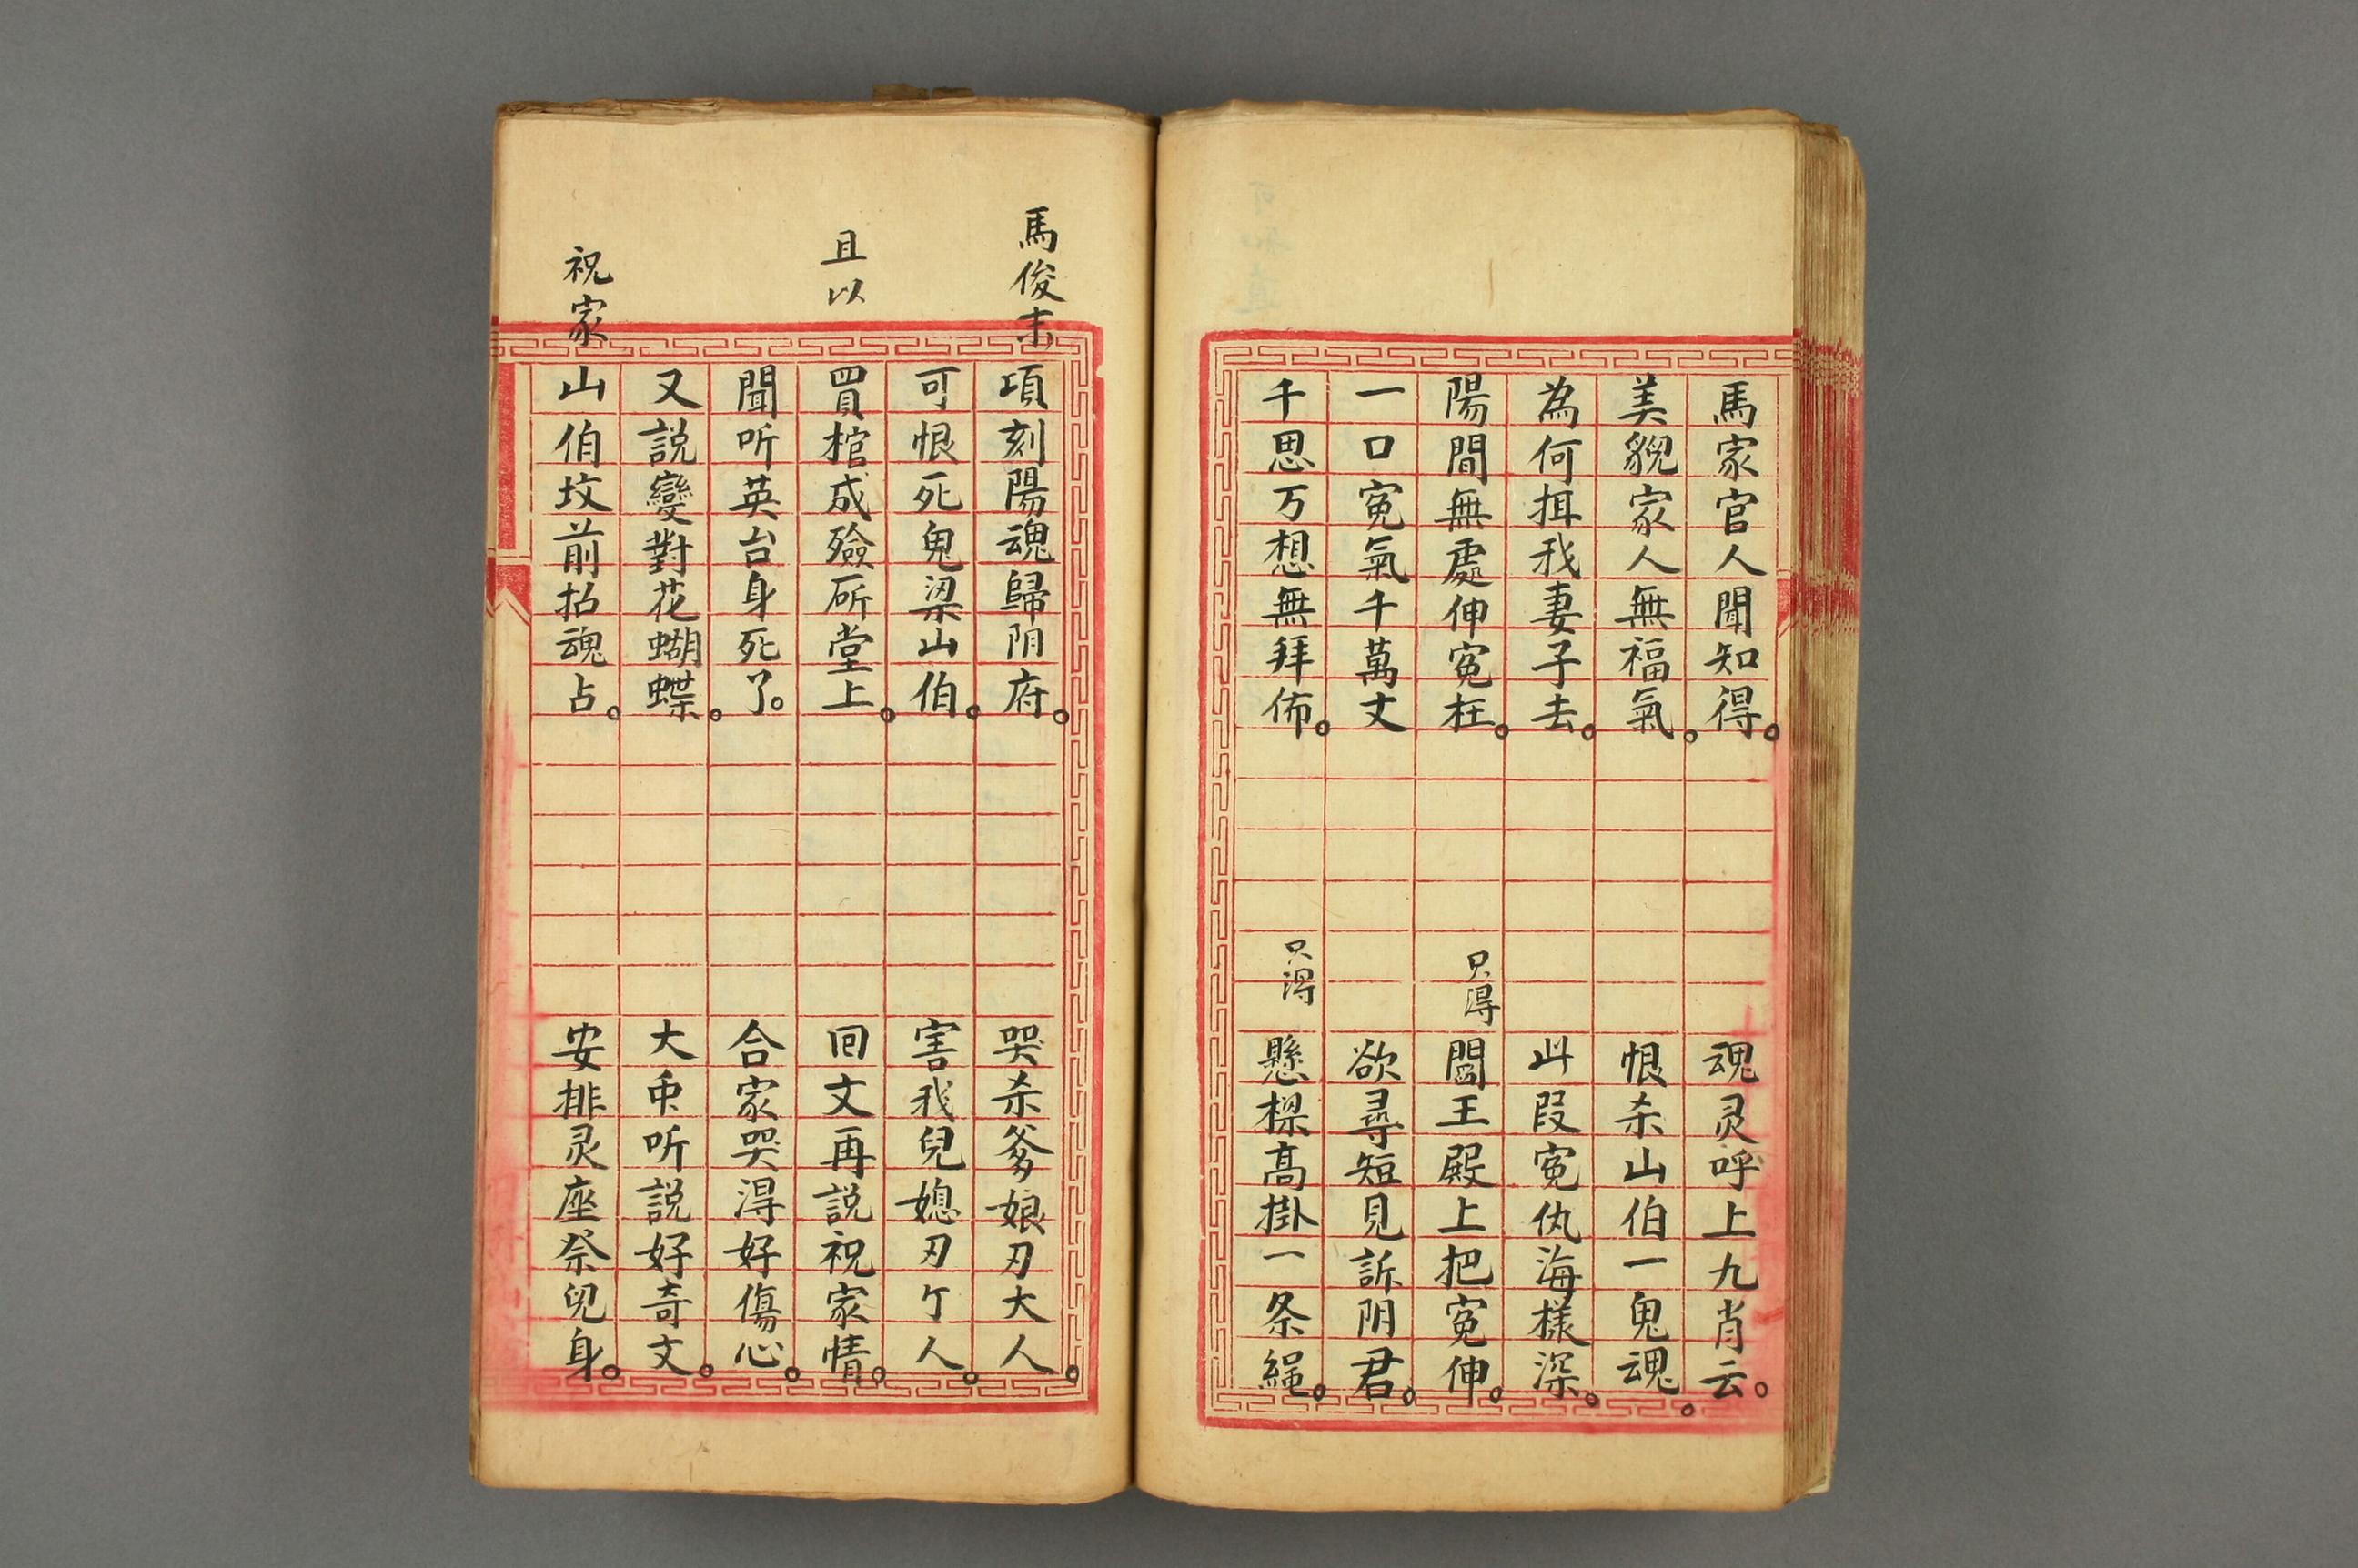 馬家官人聞知得。魂灵呼上九肖云。
美貌家人無福氣。恨杀山伯一鬼魂。
為何揖我妻子去。此段寃仇海樣深。
陽間無處伸寃枉。只得閻王殿上把寃伸。
一口寃氣千萬丈欲尋短見訴阴君。
千思万想無拜佈。只得懸樑高掛一条繩。
馬俊末項刻陽魂歸阴府。哭杀爹娘刃大人。
可恨死鬼梁山伯。害我兒媳刃亇人。
且以買棺成殮所堂上。回文再説祝家情。
聞听英台身死了。合家哭淂好傷心。
又説變對花蝴蝶。大𠂔听説好奇文。
祝家山伯坟前招魂占。安排灵座祭兒身。